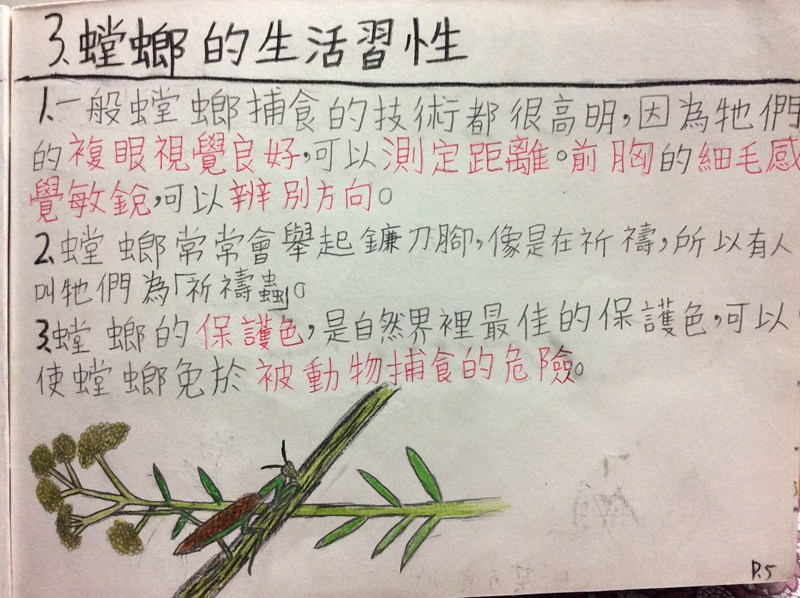 3.螳螂的生活習性
1.一般螳螂捕食的技術都很高明,因為牠們
的複眼視覺良好,可以測定距離。前胸的細毛感
覺敏銳,可以辨別方向。
2.螳螂常常會舉起鐮刀腳,像是在祈禱,所以有人
叫牠們為「祈禱蟲」。
3.螳螂的保護色,是自然界裡最佳的保護色,可以
使螳螂免於被動物捕食的危險。
P.5